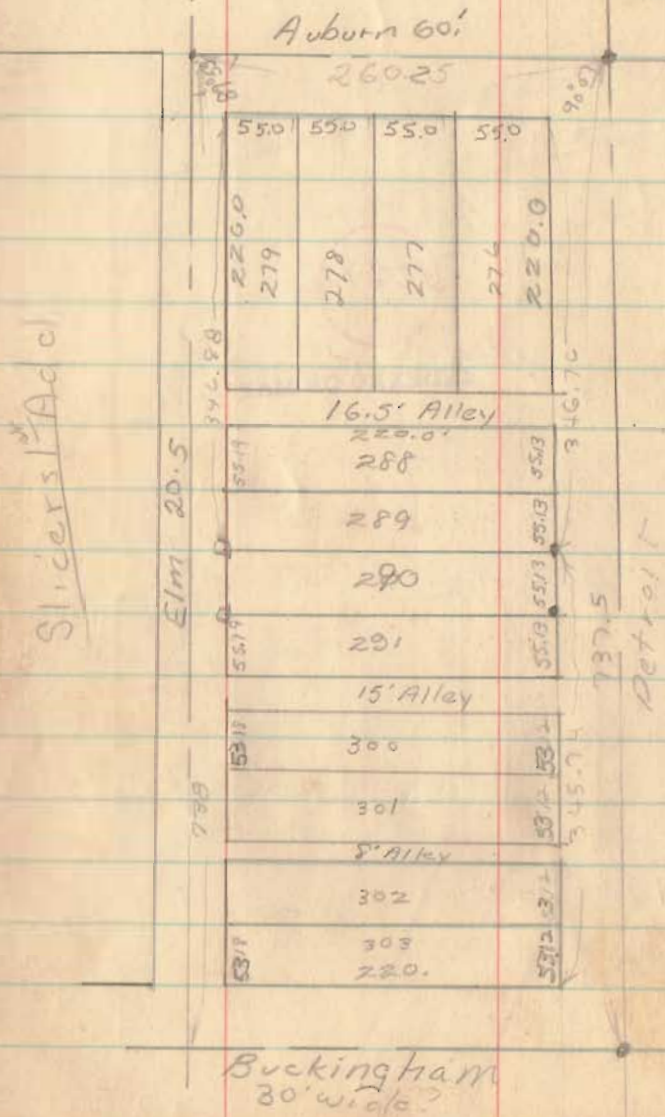 Auburn 60'
260.25
90°03'
55.0 55.0 55.0 55.0
220.0 279 278 277 276 220.0
346.88
346.76
16.5' Alley
220.0'
55.19 288 55.13
289 55.13
290 55.13
55.19 291 55.13
15' Alley
53.18 300 53.12
301 53.12
8' Alley
302 53.12
303
53.18 220. 53.12
Slicers 1st Add
Elm 20.5
738
737.5
345.74
Detroit
Buckingham
30' wide?